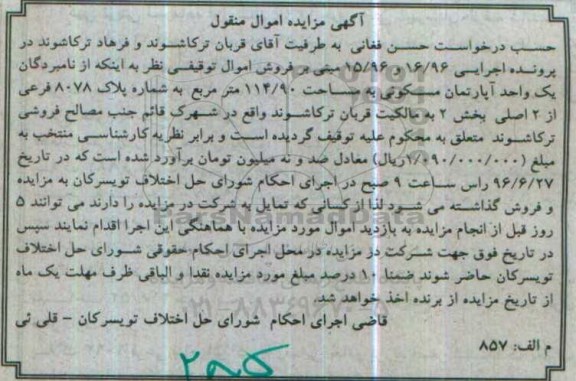 آگهی مزایده اموال منقول
حسب درخواست حسن فغانی به طرفیت آقای قربان ترکاشوند و فرهاد ترکاشوند در
پرونده اجرایی ۱۶/۹۶ و ۱۵/۹۶ مبنی بر فروش اموال توقیفی نظر به اینکه از نامبردگان
یک واحد آپارتمان مسکونی به مساحت ۱۱۴/۹۰ متر مربع به شماره پلاک ۸۰۷۸ فرعی
از ۲ اصلی بخش ۲ به مالکیت قربان ترکاشوند واقع در شهرک قائم جنب مصالح فروشی
ترکاشوند متعلق به محکوم علیه توقیف گردیده است و برابر نظریه کارشناسی منتخب به
مبلغ (۱/۰۹۰/۰۰۰/۰۰۰ریال) معادل صد و نه میلیون تومان برآورد شده است که در تاریخ
۹۶/۶/۲۷ راس ساعت ۹ صبح در اجرای احکام شورای حل اختلاف تویسرکان به مزایده
و فروش گذاشته می شود لذا از کسانی که تمایل به شرکت در مزایده را دارند می توانند ۵
روز قبل از انجام مزایده به بازدید اموال مورد مزایده با هماهنگی این اجرا اقدام نمایند سپس
در تاریخ فوق جهت شرکت در مزایده در محل اجرای احکام حقوقی شورای حل اختلاف
تویسرکان حاضر شوند ضمنا ۱۰ درصد مبلغ مورد مزایده نقدا و الباقی ظرف مهلت یک ماه
از تاریخ مزایده از برنده اخذ خواهد شد.
قاضی اجرای احکام شورای حل اختلاف تویسرکان - قلی ئی
م الف: ۸۵۷
ParsNamadData